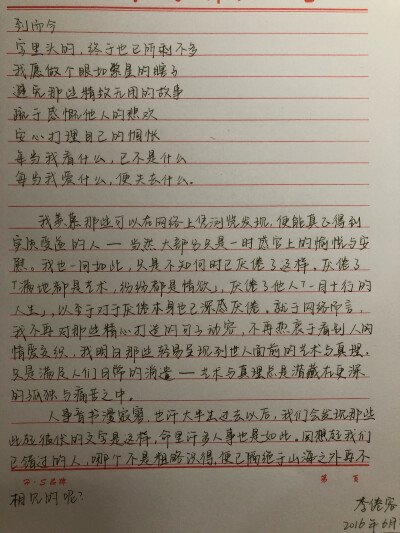 到而今
字里头的，终于也已所剩不多
我愿做个眼如繁星的瞎子
避免那些精致无用的故事
疏于感慨他人的悲欢
安心打理自己的惆怅
每当我看什么，已不是什么
每当我爱什么，便失去什么。
我羡慕那些可以在网络上凭浏览发现，便能真正得到
实质受益的人——当然大部分只是一时感官上的愉悦与安
慰。我也一向如此，只是不知何时已厌倦了这样。厌倦了
「满地都是艺术，纷纷都是情欲」，厌倦了他人「一目十行的
人生」，以至于对于厌倦本身也已深感厌倦。就于网络而言，
我不再对那些精心打造的句子动容，不再热衷于看别人的
情爱交织，我明白那些轻易呈现到世人面前的艺术与真理，
只是满足人们日常的消遣——艺术与真理总是潜藏在更深
的孤独与痛苦之中。
人事音书漫寂寥，也许大半生过去以后，我们会发现那些
此起彼伏的文字是这样，命里许多人事也是如此。回想起我们
已错过的人，哪个不是粗略识得，便已隔绝于山海之外再不
第 页
相见的呢？
李倦容
2016年6月